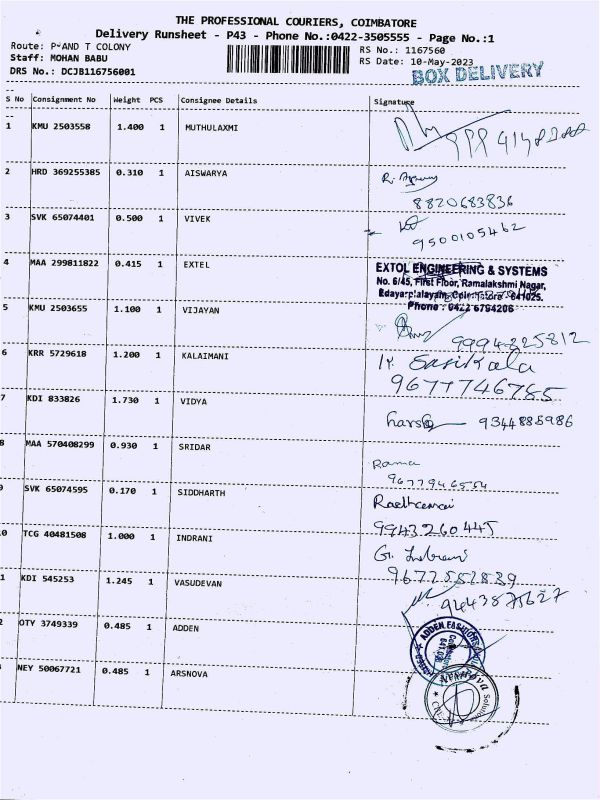 THE PROFESSIONAL COURIERS, COIMBATORE
Delivery Runsheet - P43 - Phone No.:0422-3505555 - Page No.:1
Route: P AND T COLONY
RS No.: 1167560
Staff: MOHAN BABU
RS Date: 10-May-2023
DRS No.: DCJB116756001
BOX DELIVERY
S No Consignment No Weight PCS Consignee Details Signature
1 KMU 2503558 1.400 1 MUTHULAXMI
2 HRD 369255385 0.310 1 AISWARYA
8820683836
3 SVK 65074401 0.500 1 VIVEK
9500105462
4 MAA 299811822 0.415 1 EXTEL
EXTOL ENGINEERING & SYSTEMS
No. 6/45, First Floor, Ramalakshmi Nagar,
Edayarpalayam, Coimbatore - 641025.
Phone : 0422 6794206
5 KMU 2503655 1.100 1 VIJAYAN
9994325812
6 KRR 5729618 1.200 1 KALAIMANI
K. Sasikala
9677746785
7 KDI 833826 1.730 1 VIDYA
9344885986
8 MAA 570408299 0.930 1 SRIDAR
Rama
9677946554
9 SVK 65074595 0.170 1 SIDDHARTH
9943260445
0 TCG 40481508 1.000 1 INDRANI
G. Indrani
9672552839
1 KDI 545253 1.245 1 VASUDEVAN
9443875627
2 OTY 3749339 0.485 1 ADDEN
ADDEN FASHIONS
NEY 50067721 0.485 1 ARSNOVA
Solutions